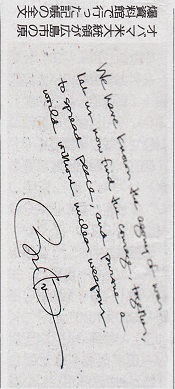 オバマ米大統領が広島市の原
爆資料館で行った記帳の全文
We have known the agony of war.
Let us now find the courage, together,
to spread peace, and pursue a
world without nuclear weapons.